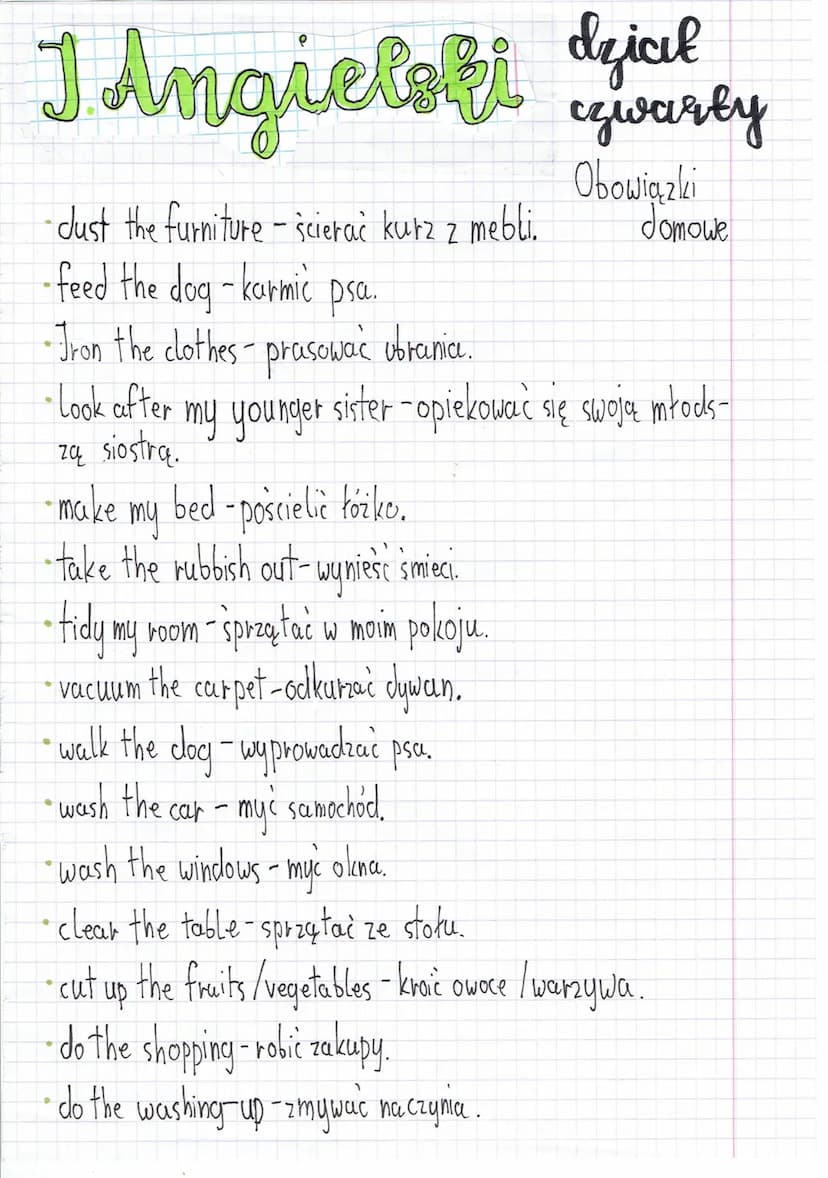 J. Angielski
dział
czwarty
Obowiązki
domowe
• dust the furniture - ścierać kurz z mebli.
• feed the dog - karmić psa.
• Iron the clothes - prasować ubrania.
• Look after my younger sister - opiekować się swoją młods-
zą siostrą.
• make my bed - pościelić łóżko.
• take the rubbish out - wynieść śmieci.
• tidy my room - sprzątać w moim pokoju.
• vacuum the carpet - odkurzać dywan.
• walk the dog - wyprowadzać psa.
• wash the car - myć samochód.
• wash the windows - myć okna.
• clear the table - sprzątać ze stołu.
• cut up the fruits/vegetables - kroić owoce /warzywa.
• do the shopping - robić zakupy.
• do the washing-up - zmywać naczynia.